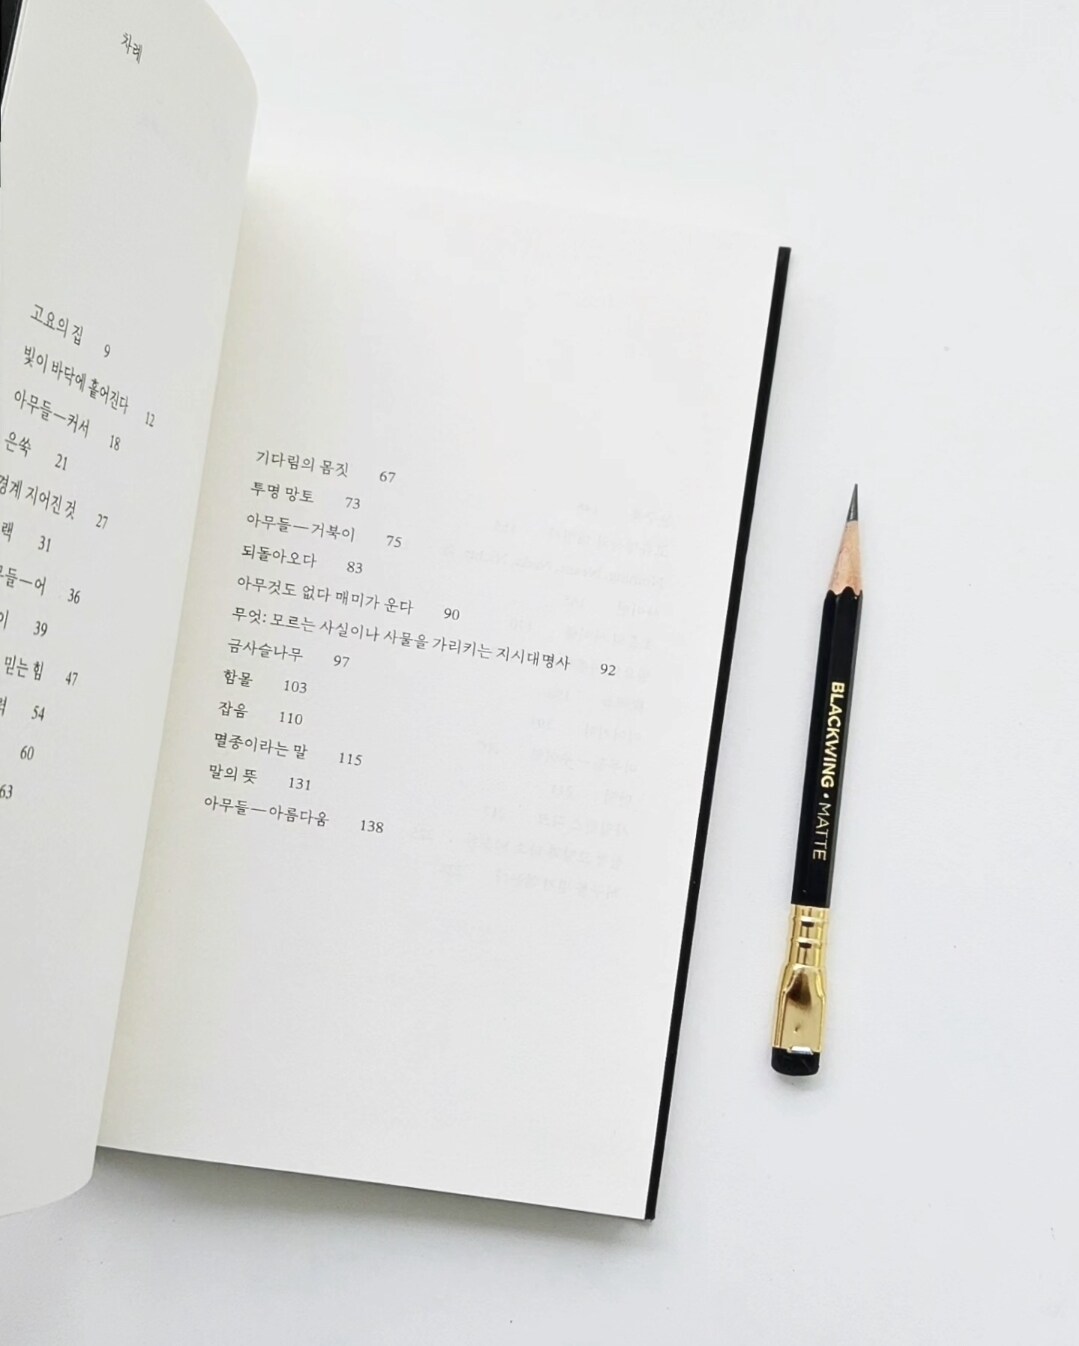 차례
고요의 집 9
빛이 바닥에 흩어진다 12
아무들—커서 18
은쑥 21
경계 지어진 것 27
랙 31
무들—어 36
이 39
믿는 힘 47
력 54
60
63
기다림의 몸짓 67
투명 망토 73
아무들—거북이 75
되돌아오다 83
아무것도 없다 매미가 운다 90
무엇: 모르는 사실이나 사물을 가리키는 지시대명사 92
금사슬나무 97
함몰 103
잡음 110
멸종이라는 말 115
말의 뜻 131
아무들—아름다움 138
BLACKWING • MATTE